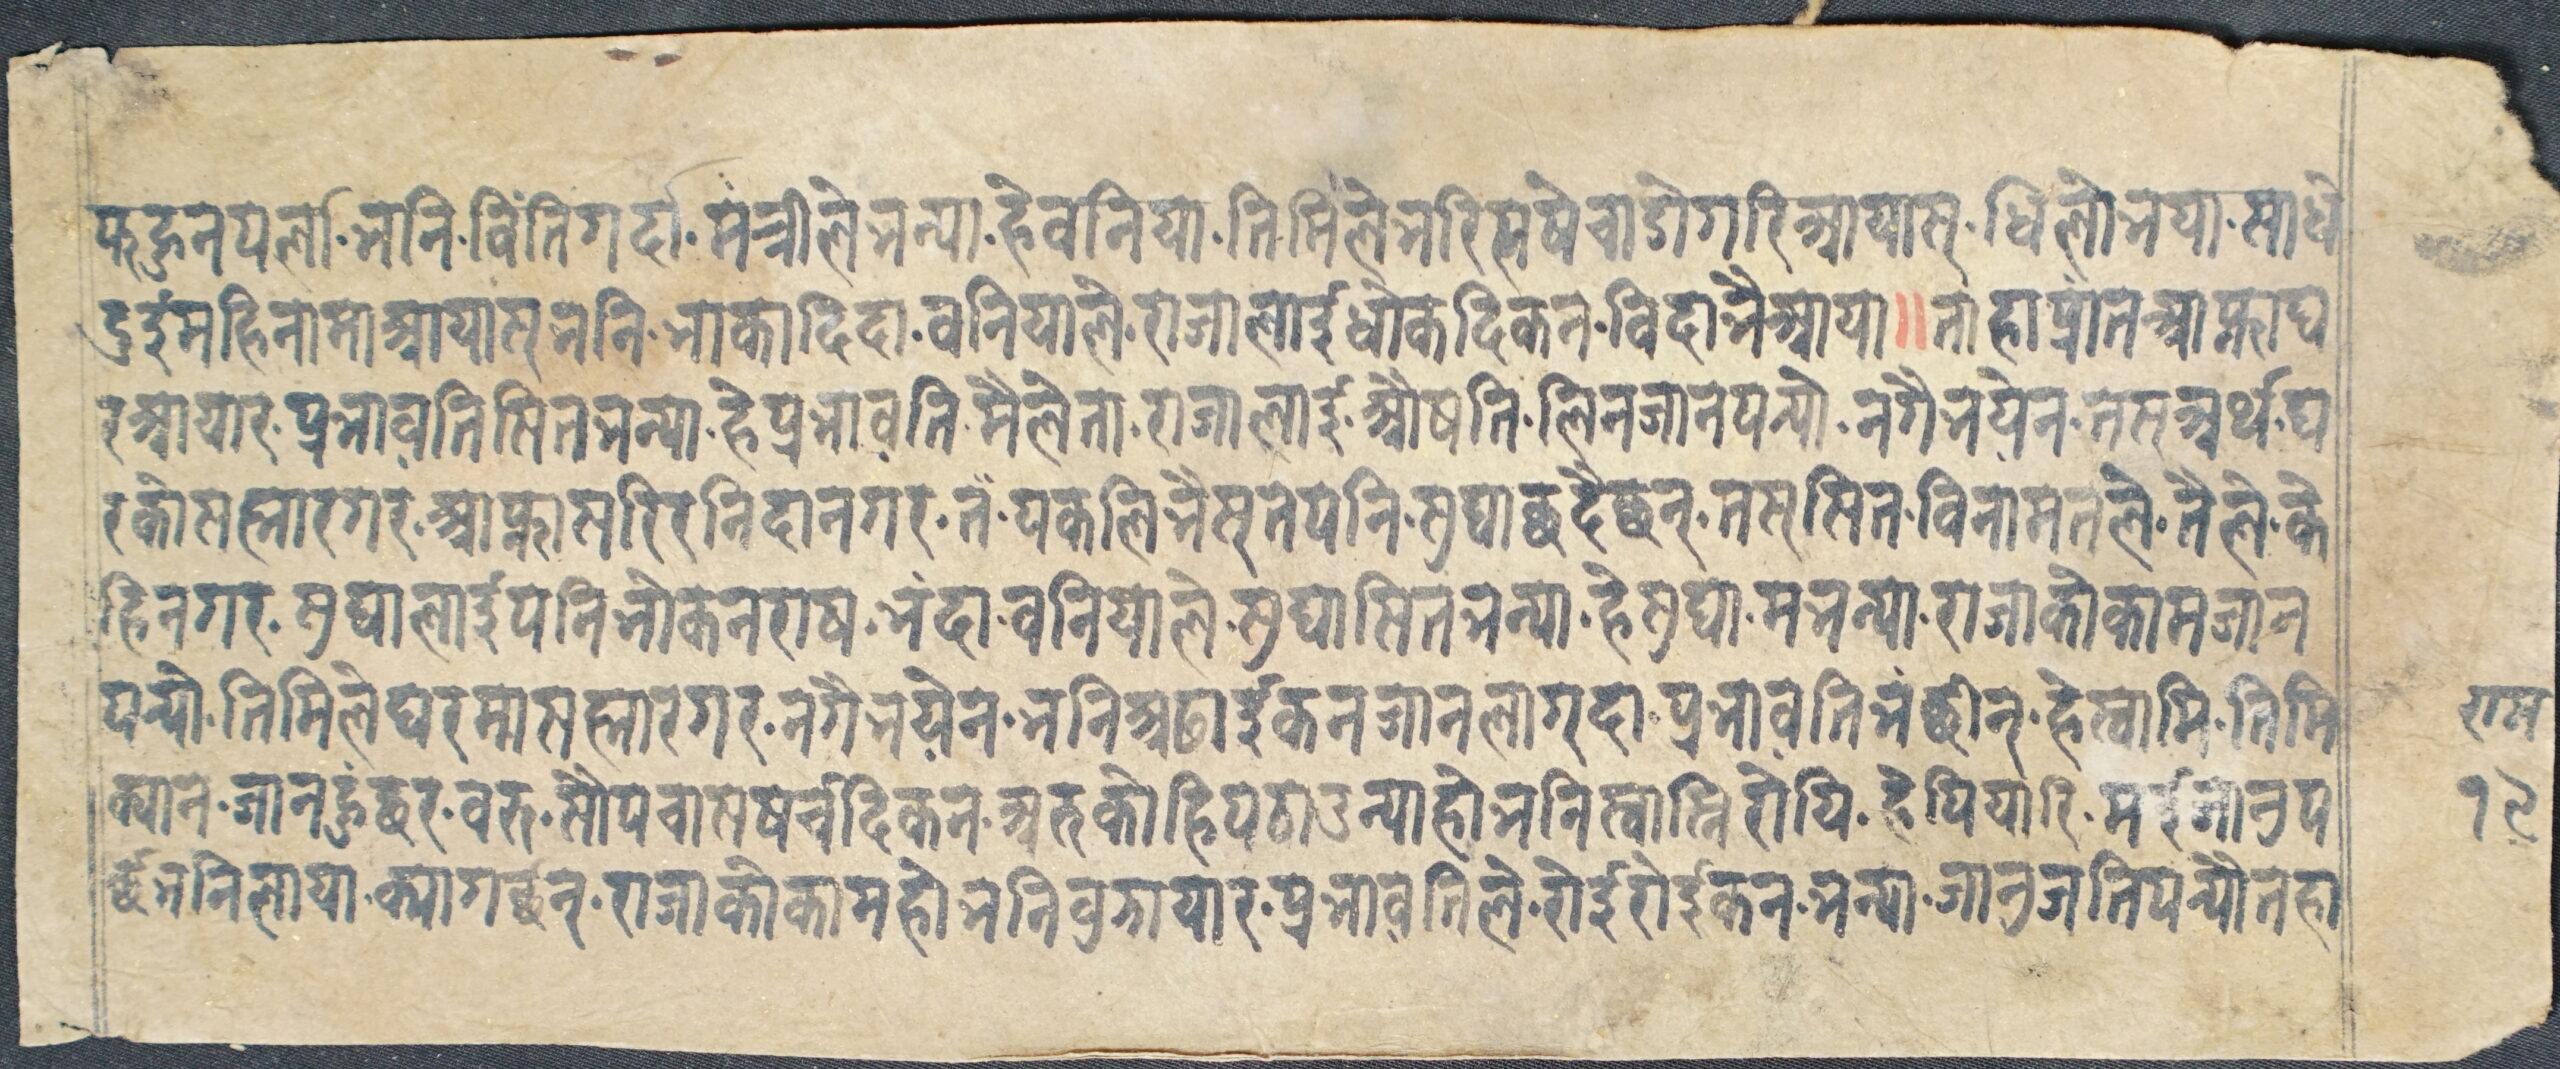 फ्हुनपर्ला·भनि·विंतिगर्दा·मंत्रीलेभन्या·हेवनिया·तिमिलेभरिसषेचाडोगरिआयास्·धिलोभया·साधे
दुइमहिनामाआयास्भनि·भाकादिदा·वनियाले·राजालाईधोकदिकन·विदाभैआया॥ताहाप्रांतआफ्नाघ
रआयार·प्रभावतिसितभन्या·हेप्रभावति·मैलेता·राजालाई·औषति·लिनजानपर्‍यो·नगैभयेन·तसअर्थ·घ
रकोसह्मारगर्·आफ्नासरिरनिदानगर्·तँ·पकलिभैस्तपनि·सुघाछदैछन्·तससित·विनामतले·तैले·के
हिनगर्·सुघालाईपनिभोकनराष·भंदा·वनियाले·सुघासितभन्या·हेसुघा·मभन्या·राजाकोकामजान
पर्‍यो·तिमिलेघरमासह्मारगर·नगैभयेन·भनिअढाईकनजानलाग्दा·प्रभावतिभंछीन्·हेस्वामि·तिमि
क्यान·जानहुंछर·वरु·सौपचासषर्चदिकन·अरुकोहिपठाउन्याहोभनिस्वाम्नि रोपि·हेपियारि·मईजानुप
र्छभनिलाया·क्यागर्छन्·राजाकोकामहोभनिवुझायार·प्रभावतिले·रोईरोईकन·भन्या·जानुजतिपर्‍योतहा
राम
१२